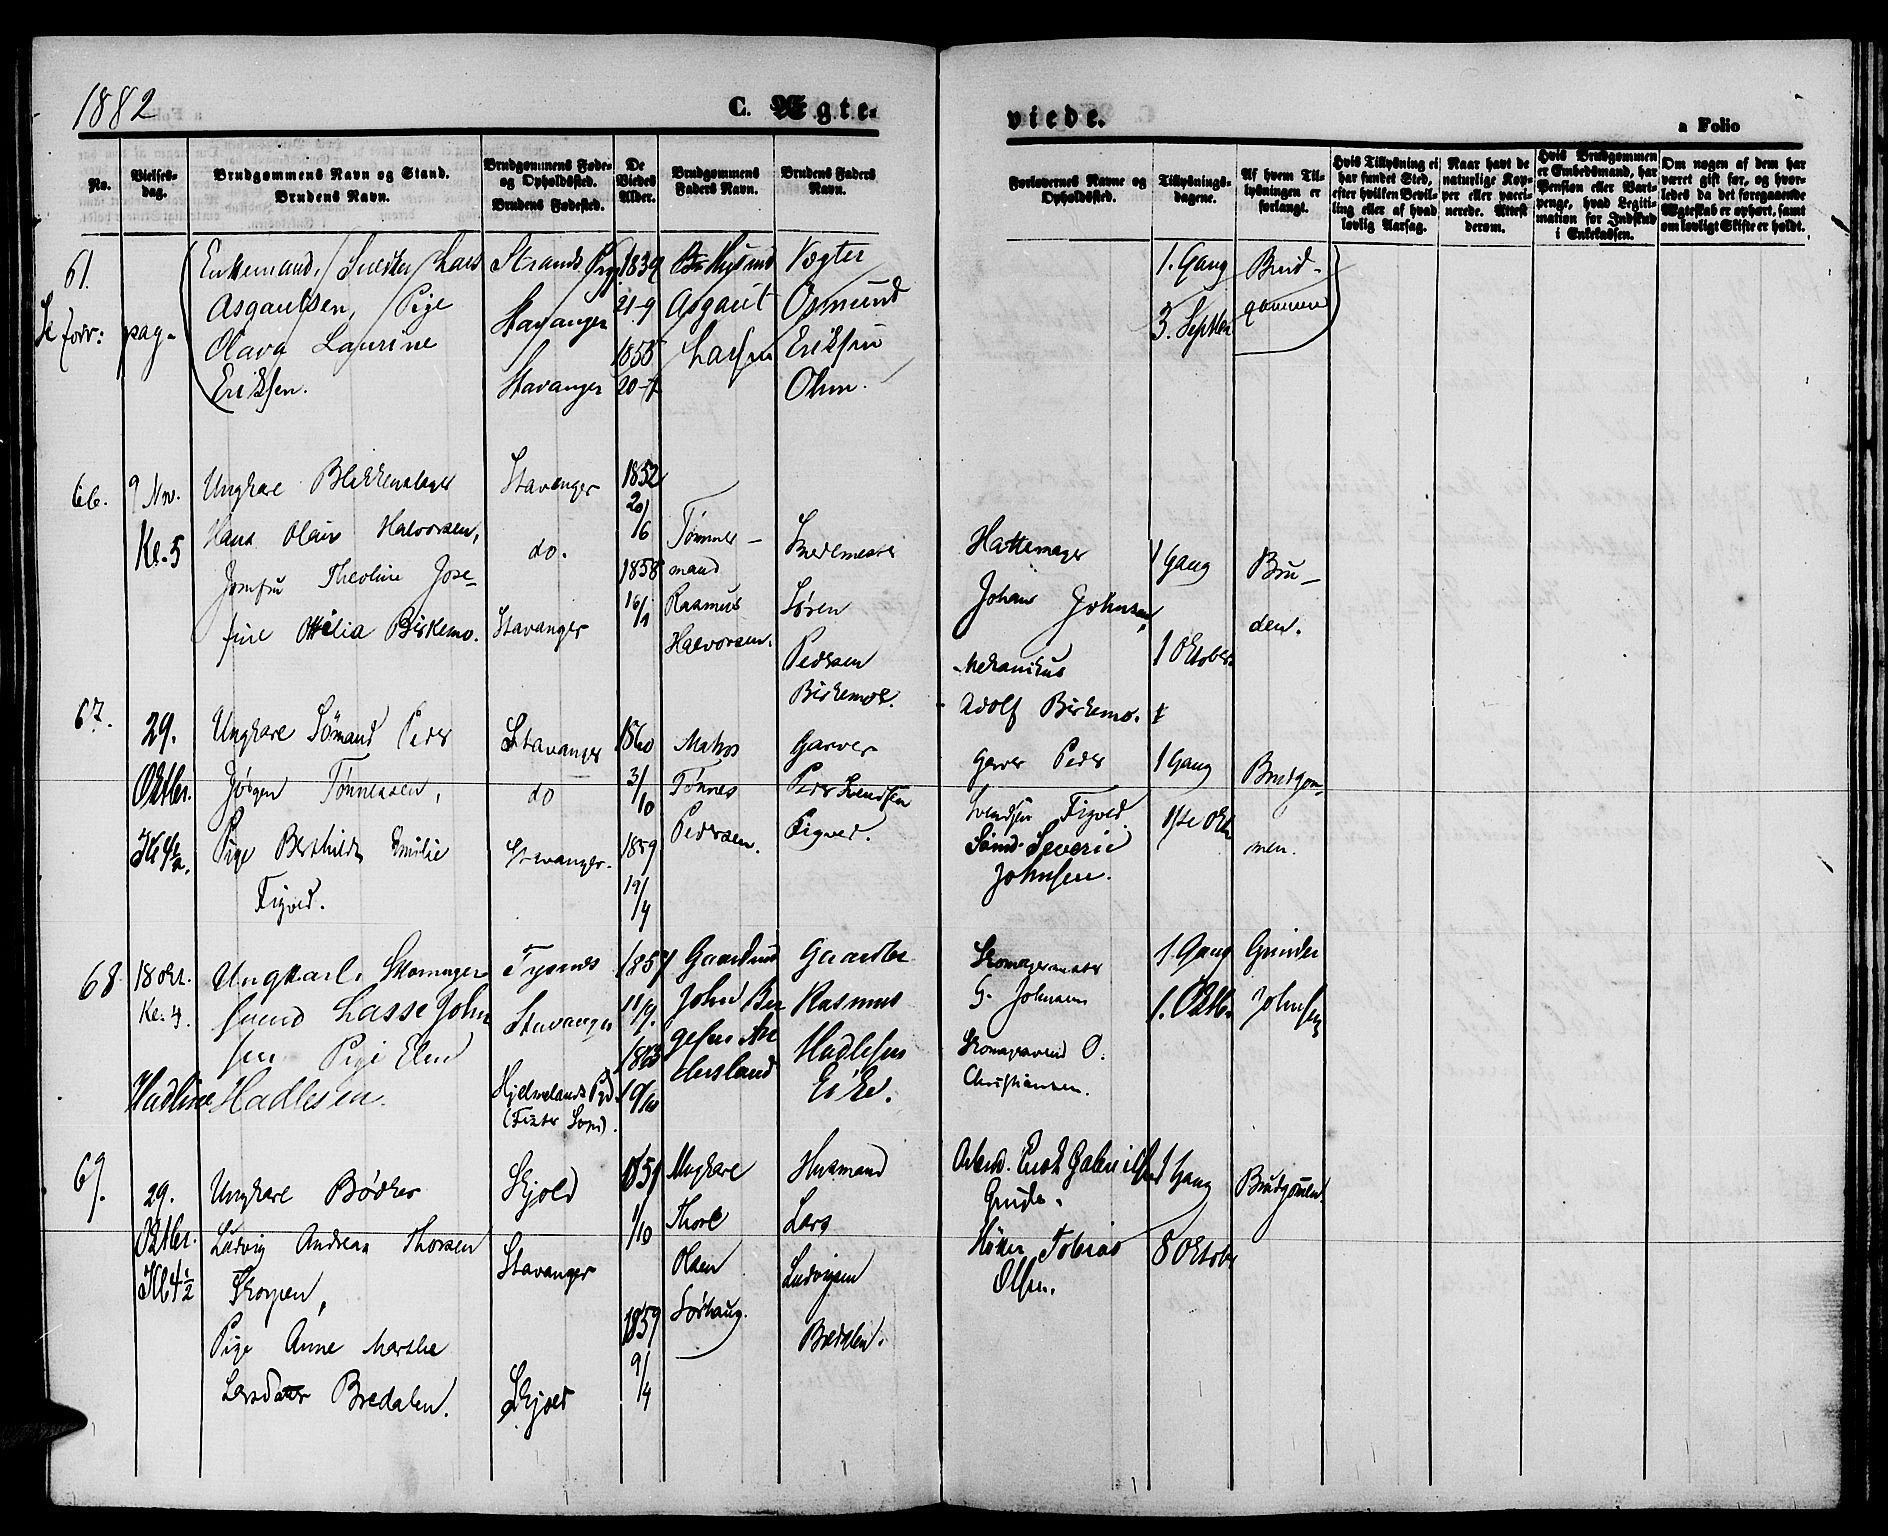 1882
C. Ægte-
viede.
a Folio
No.
Vielses-
dag.
Brudgommens Navn og Stand.
Brudens Navn.
Brudgommens Føde-
og Opholdssted.
Brudens Fødested.
De
Viedes
Alder.
Brudgommens
Faders Navn.
Brudens Faders
Navn.
Forlovernes Navne og
Opholdssted.
Tillysnings-
dagene.
Af hvem Til-
lysningen er
forlangt.
Hvis Tillysning ei
har fundet Sted,
efter hvilken Bevil-
ling eller af hvad
lovlig Aarsag.
Naar havt de
naturlige Kop-
per eller vacci-
nerede. Attest
derom.
Hvis Brudgommen
er Embedsmand, har
Pension eller Vart-
penge, hvad Legiti-
mation for Indskud
i Enkekassen.
Om nogen af dem har
været gift før, og hvor-
ledes da det foregaaende
Ægteskab er ophørt, samt
om lovligt Skifte er holdt.
61.
Se forr: pag.
Enkemand, Snedker Lars
Asgautsen, / Pige
Olava Laurine
Eriksen.
Strands Pg.
Stavanger
Stavanger
1839
21-9
1855
Asgaut
Larsen
Vogter
Osmund
Eriksen
Ohm.
1. Gang
3. Septbr
Brud-
gommen
66.
9 Nov.
Kl. 5
Ungkarl Blikkenslager
Hans Olaus Halvorsen,
Jomfru Theoline Jose-
fine Ottilia Birkemo.
Stavanger
do.
Stavanger
1852
20/6
1858
16/1
Tømmer-
mand
Rasmus
Halvorsen.
Søren
Pedersen
Birkemoe.
Hattemager
Johan Johnsen,
Mekanikus
Adolf Birkemo.
1 Gang
1 Oktober
Bru-
den.
67.
29.
Oktbr.
Kl 4½.
Ungkarl Sømand Peder
Jørgen Tønnessen,
Pige Berthilde Emilie
Tigved.
Stavanger
do
Stavanger.
1860
3/10
1859
19/4
Matros
Tønnes
Pedersen.
Garver
Peder Svendsen
Tigved.
Garver Peder
Svendsen Tigved.
Sømd. Severin
Johnsen.
1 Gang
1ste Okt
Brudgom-
men.
68
18 Okt.
Kl. 4.
Ungkarl. Skomager
svend Lasse John
sen. Pige Elen
Hadline Hadlesen.
Tysnes
Stavanger
Hjelmelands Pgd.
1857
11/9.
1863
19/10
Gaardmd
John Bør
gesen
Gaardbr
Rasmus
Hadlesen
Eike.
Skomagermester
G. Johnsen
Skomagersvend O.
Christiansen.
1. Gang
1. Oktbr.
Johnsen
69.
29.
Oktbr.
Kl 4½
Ungkarl Bødker
Ludvig Andreas Thorsen
Skorpen,
Pige Anne Marthe
Larsdatter Bredalen.
Skjold
Stavanger
Skjold
1/10
1859
9/4
Ungkarl
Thore
Olsen
Sørhaug.
Husmand
Lars
Ludvigsen
Bredalen.
Arbmd. Enok Gabrielsen
Grude.
Tobias
Olsen.
1 Gang
8 Oktober
Brudgommen.